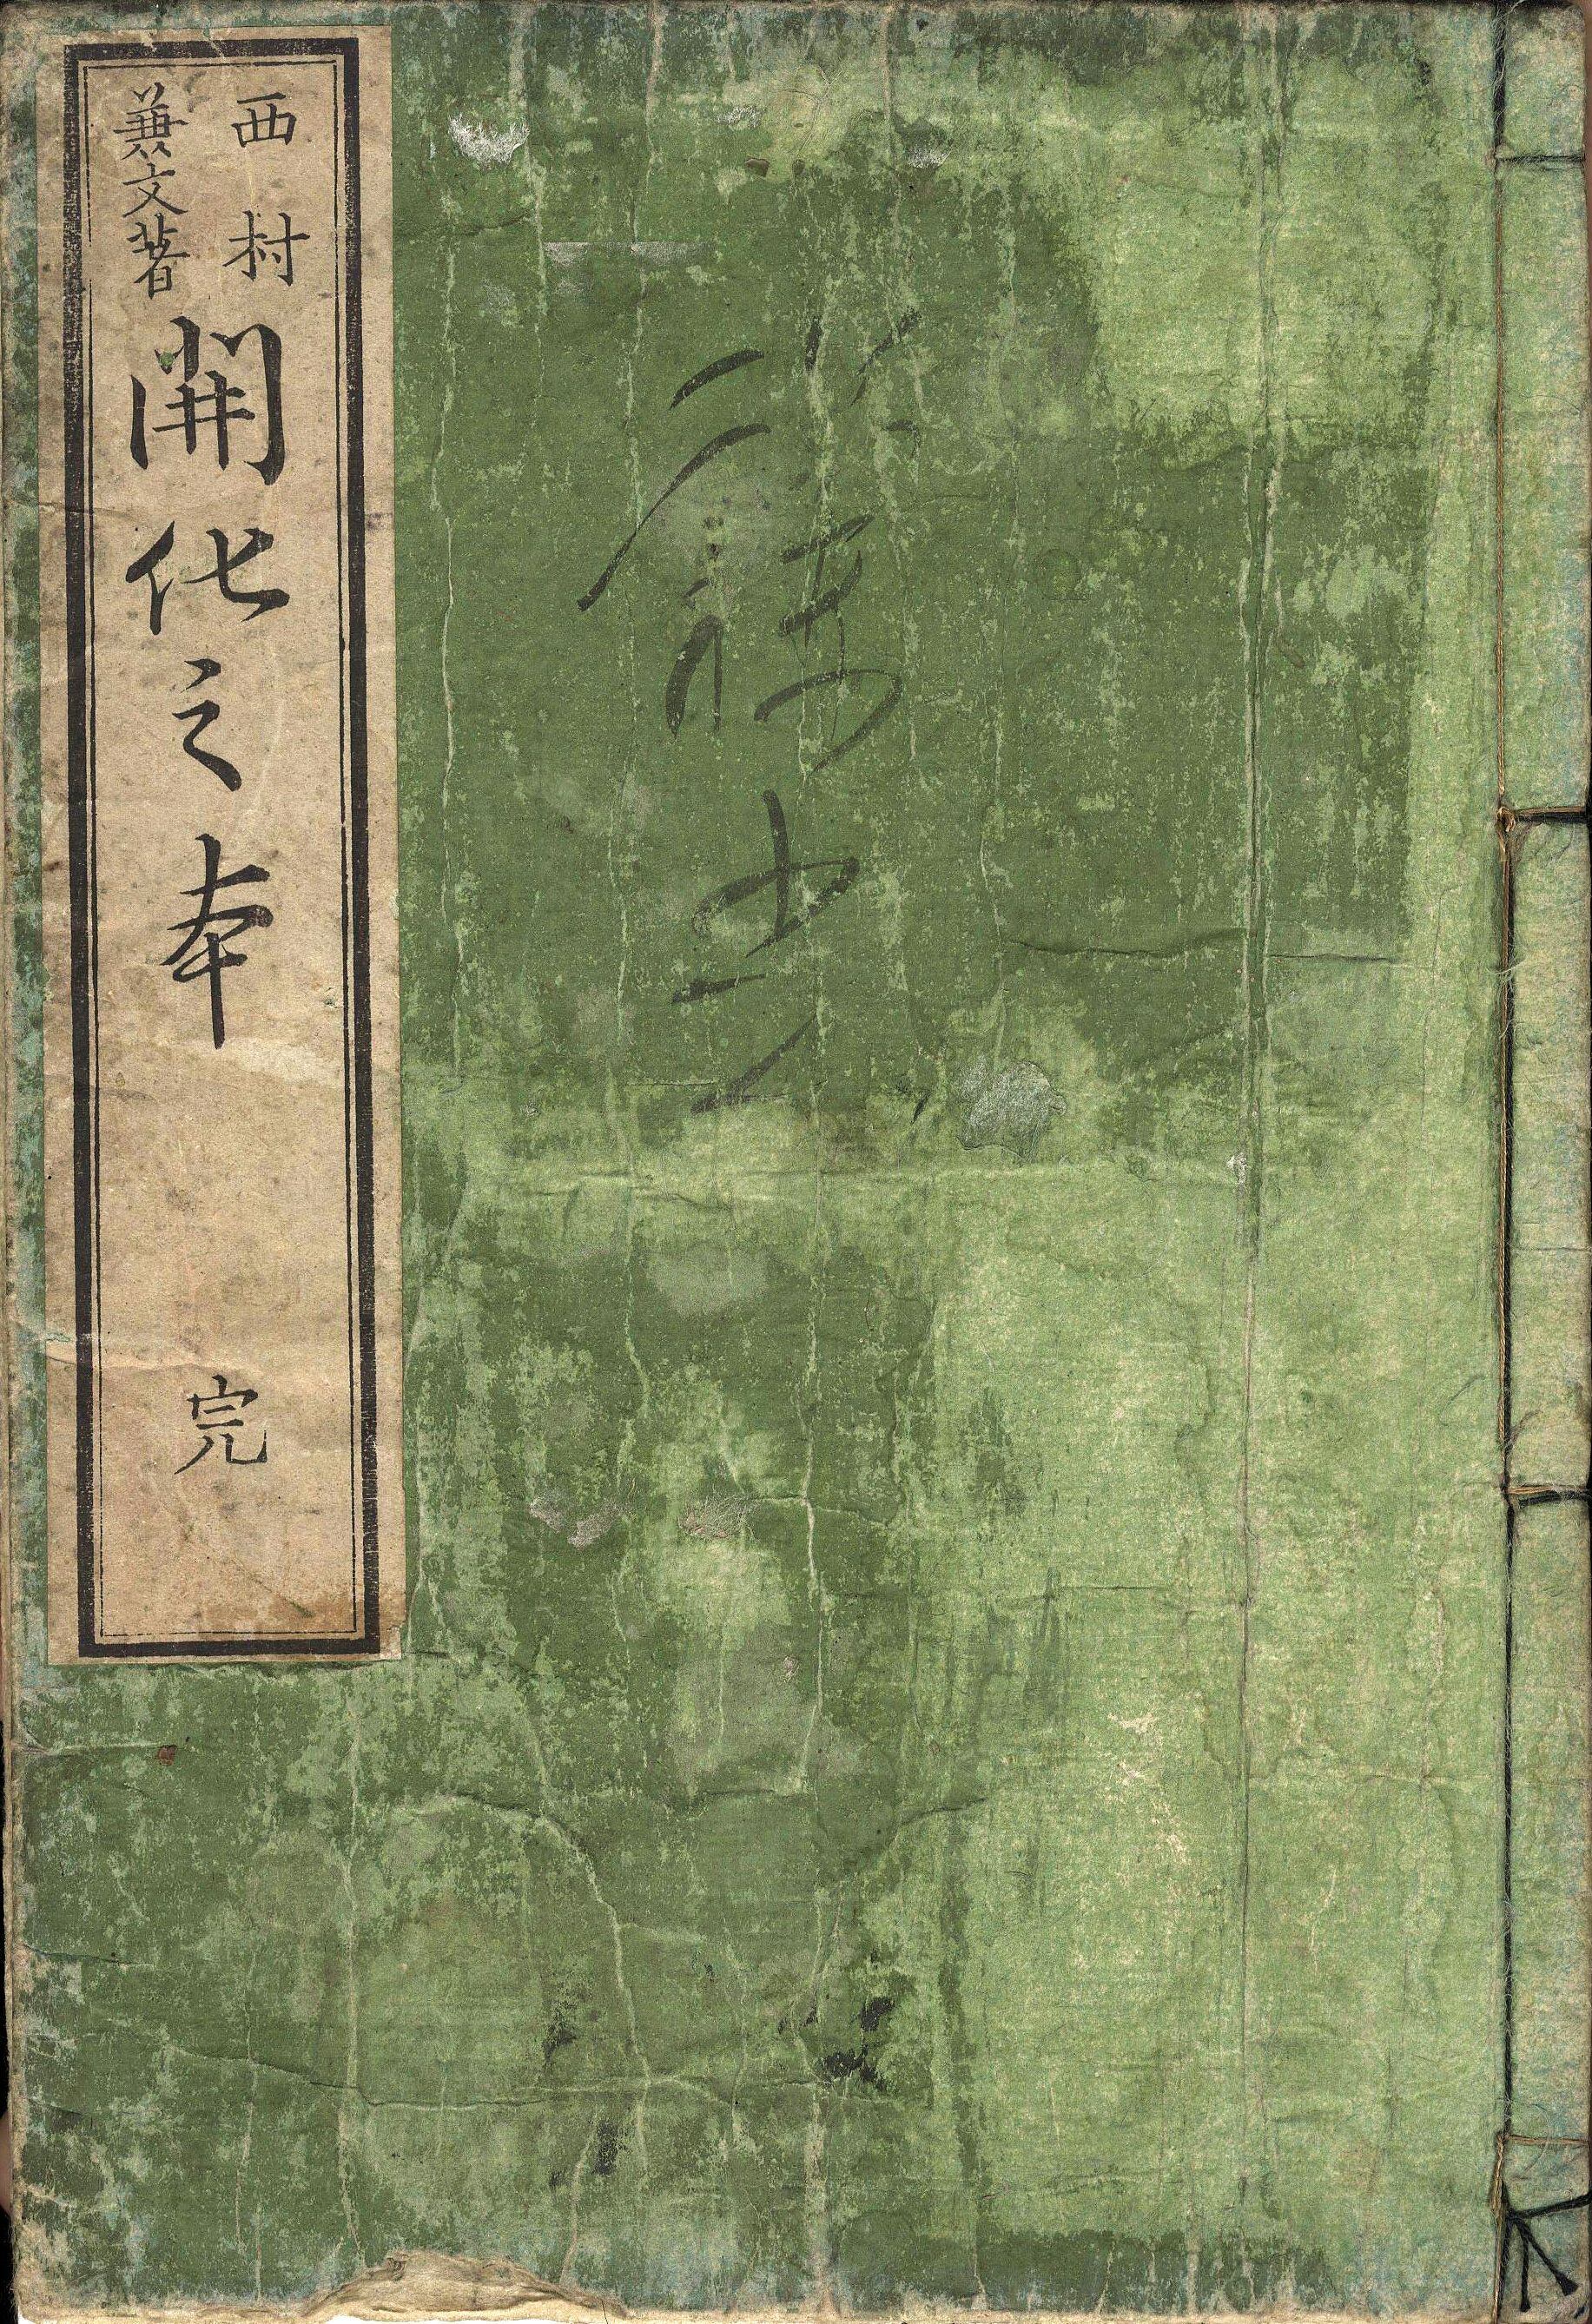 西村
兼文著
開化之本
完